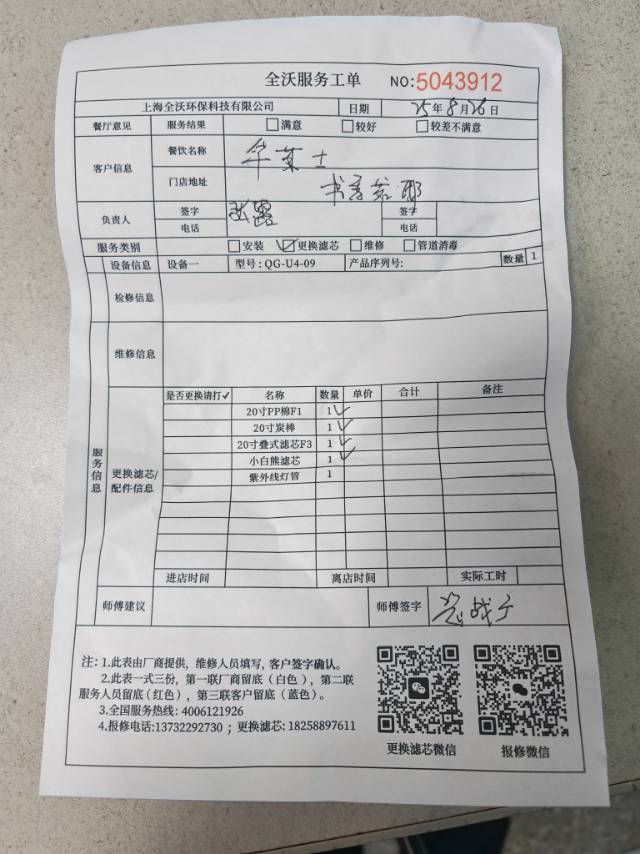 全沃服务工单 NO:5043912
上海全沃环保科技有限公司 日期 25年8月26日
餐厅意见 服务结果 满意 较好 较差不满意
客户信息 餐饮名称 华莱士
门店地址
负责人 签字 张露 签字
电话 电话
服务类别 安装 更换滤芯 维修 管道消毒
设备信息 设备一 型号:QG-U4-09 产品序列号: 数量 1
检修信息
维修信息
服务信息
更换滤芯/配件信息
是否更换请打✓ 名称 数量 单价 合计 备注
20寸PP棉F1 1 ✓
20寸炭棒 1 ✓
20寸叠式滤芯F3 1 ✓
小白熊滤芯 1 ✓
紫外线灯管 1
进店时间 离店时间 实际工时
师傅建议 师傅签字
注:1.此表由厂商提供,维修人员填写,客户签字确认。
2.此表一式三份,第一联厂商留底(白色),第二联
服务人员留底(红色),第三联客户留底(蓝色)。
3.全国服务热线:4006121926
4.报修电话:13732292730;更换滤芯:18258897611
更换滤芯微信 报修微信